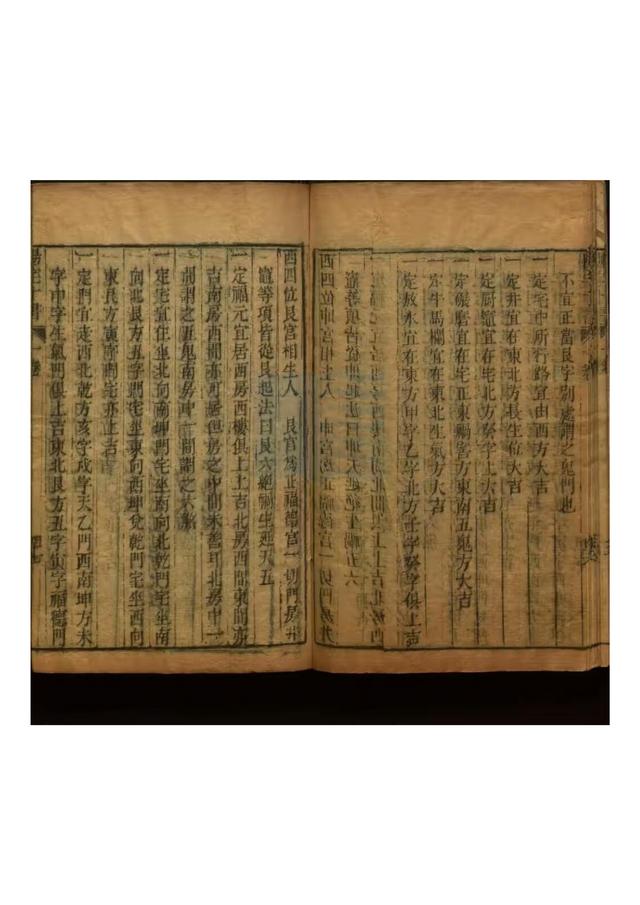 不宜正當艮字別處謂之鬼門也
一定宅中所行路宜由西方大吉
一定井宜在東北方長生位大吉
一定廚竈宜在宅北方癸字上大吉
一定碾磨宜在宅正東禍害方東南五鬼方大吉
一定牛馬欄宜在東北生氣方大吉
一定放水宜在東方甲字乙字北方壬字癸字俱上吉
西四位坤宮相生人
西四位艮宮相生人 艮宮為正福德宮一切門房井
竈等項皆從艮起法曰艮六絕禍生延天五
一定福元宜居西房西樓俱上上吉北房西間東間亦
吉南房西間亦可居但房之中間未善耳北房中一
間謂之五鬼南房中一間謂之六煞
一定宅宜住坐北向南坤門宅坐南向北乾門宅坐南
向北艮方丑字門宅坐東向西坤兌乾門宅坐西向
東艮方寅字門宅亦上吉
一定門宜走西北乾方亥字戌字天乙門西南坤方未
字申字生氣門俱上吉東北艮方丑字寅字福德門